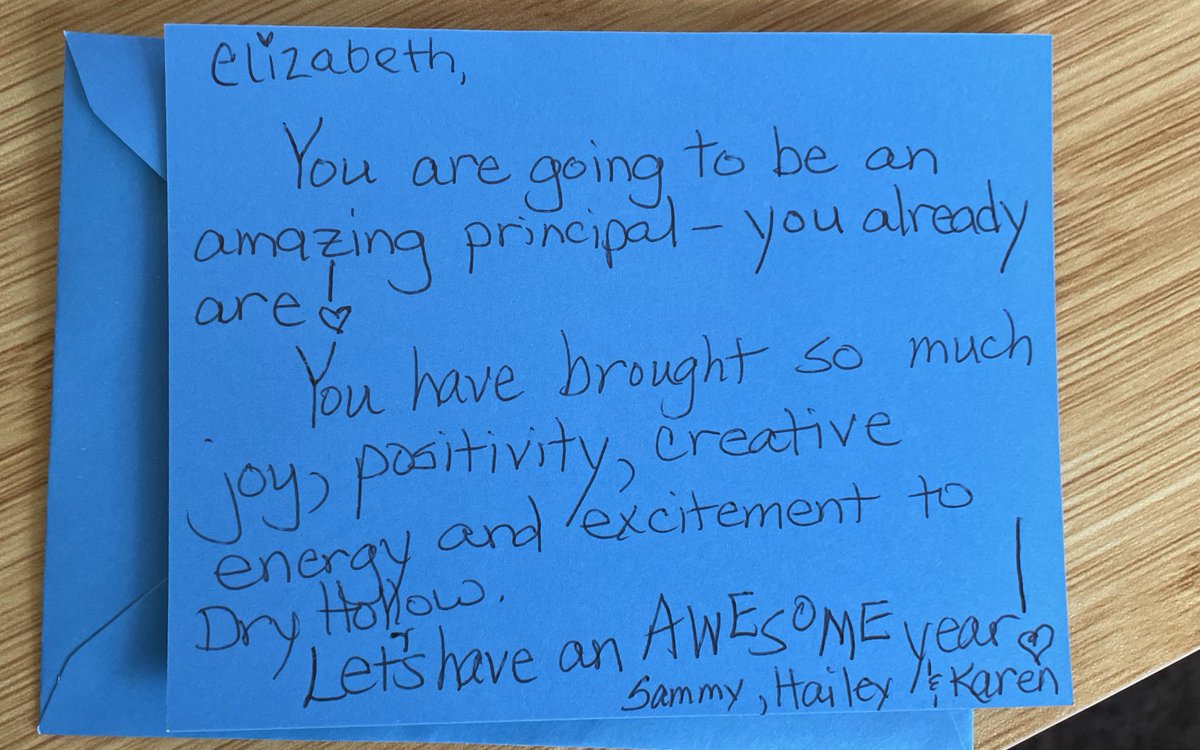 elizabeth,
You are going to be an
amazing principal - you already
are!
You have brought so much
joy, positivity, creative
energy and excitement to
Dry Hollow.
Let's have an AWESOME year!
Sammy, Hailey & Karen